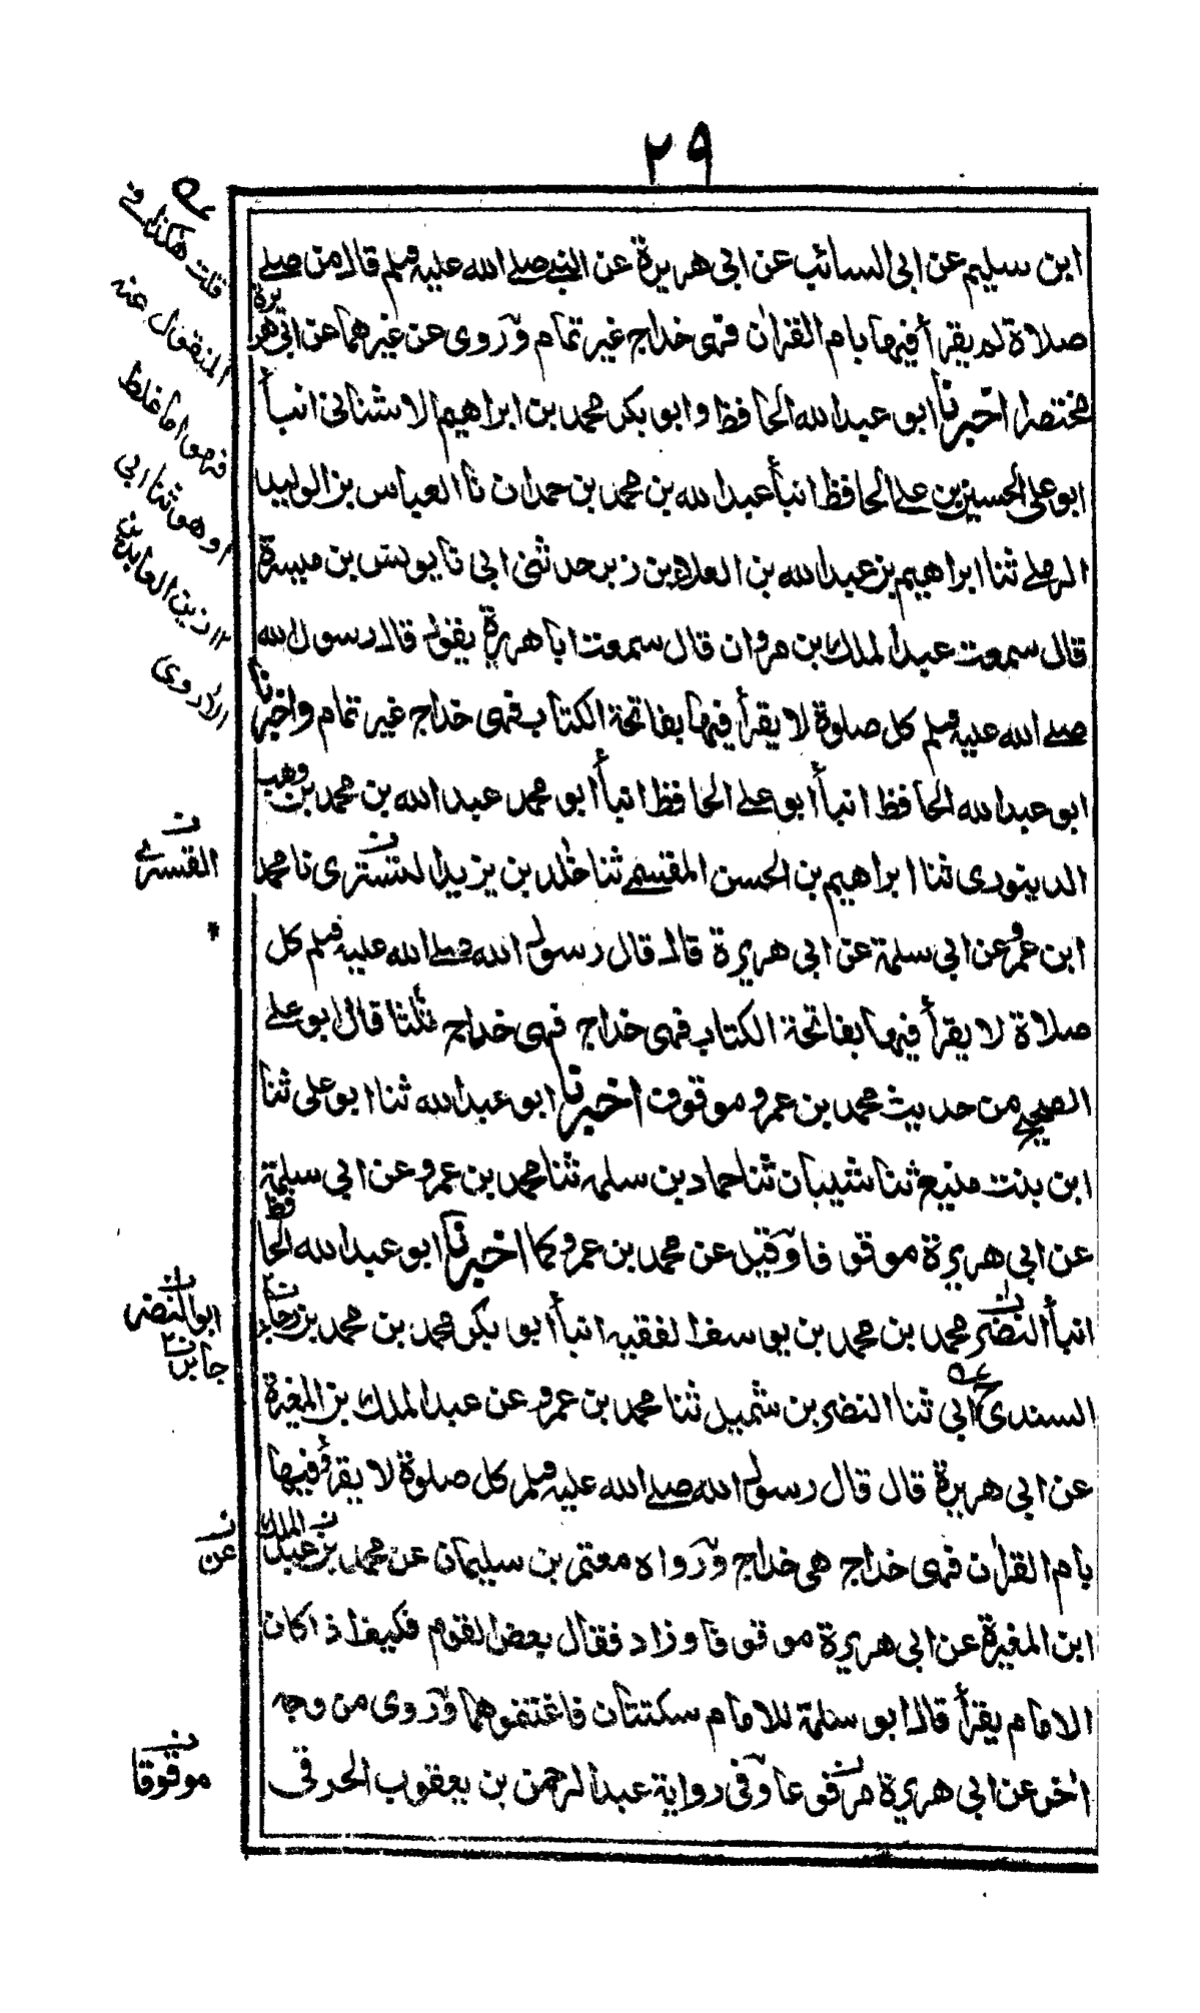 ٢٩
ابن سليم عن ابى السائب عن ابى هريرة عن النبى صلى الله عليه وسلم قال من صلى
صلاة لم يقرأ فيها بام القرآن فهى خداج غير تمام وروى عن غيرهما عن ابى هريرة
مختصرا اخبرنا ابو عبد الله الحافظ وابو بكر محمد بن ابراهيم الاشنانى انبأ
ابو على الحسين بن على الحافظ انبأ عبد الله بن محمد بن حمدان نا العباس بن الوليد
الرملى ثنا ابراهيم بن عبد الله بن العلاء بن زبر حدثنى ابى نا يونس بن ميسرة
قال سمعت عبد الملك بن مروان قال سمعت ابا هريرة يقول قال رسول الله
صلى الله عليه وسلم كل صلوة لا يقرأ فيها بفاتحة الكتاب فهى خداج غير تمام واخبرنا
ابو عبد الله الحافظ انبأ ابو على الحافظ انبأ ابو محمد عبد الله بن محمد بن وهب
الدينورى ثنا ابراهيم بن الحسن المقسمى ثنا خلد بن يزيد التسترى نا محمد
ابن عمرو عن ابى سلمة عن ابى هريرة قال قال رسول الله صلى الله عليه وسلم كل
صلاة لا يقرأ فيها بفاتحة الكتاب فهى خداج فهى خداج ثلثا قال ابو على
الصحيح من حديث محمد بن عمرو موقوف اخبرنا ابو عبد الله ثنا ابو على ثنا
ابن بنت منيع ثنا شيبان ثنا حماد بن سلمه ثنا محمد بن عمرو عن ابى سلمة
عن ابى هريرة موقوفا وقيل عن محمد بن عمرو كما اخبرنا ابو عبد الله الحافظ
انبأ النضر محمد بن محمد بن يوسف الفقيه انبأ ابو بكر محمد بن محمد بن رجاء
السندى ح ابى ثنا النضر بن شميل ثنا محمد بن عمرو عن عبد الملك بن المغيرة
عن ابى هريرة قال قال رسول الله صلى الله عليه وسلم كل صلوة لا يقرأ فيها
بام القرآن فهى خداج هى خداج ورواه معتمر بن سليمان عن محمد بن عبد الملك
ابن المغيرة عن ابى هريرة موقوفا وزاد فقال بعض القوم فكيف اذا كان
الامام يقرأ قال ابو سلمة للامام سكتتان فاغتنموهما وروى من وجه
اخر عن ابى هريرة مرفوعا وفى رواية عبد الرحمن بن يعقوب الحرقى
قلت هكذا فى
المنقول عنه
فهو اما غلط
او هو ثنا ابى
١٢ زين العابدين
الاروى
القسرى
ابو النضر
جابر
عن
موقوفا